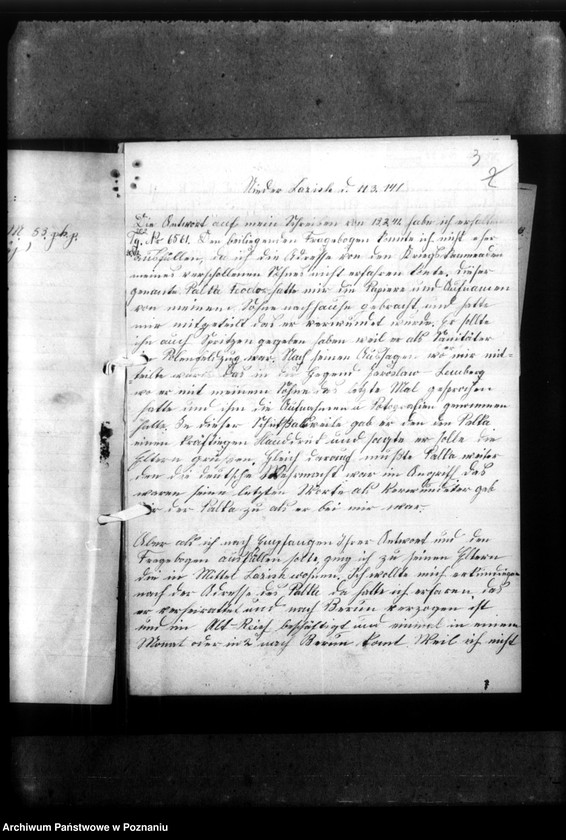 3
2
M. 53. ph. p.
Nieder Lazisk d. 11 3. 141
Die Antwort auf mein Schreiben von 13 2 42 habe ich erhalten
Tg. Nr 6561. Den beiliegenden Fragebogen konnte ich nicht eher
ausfüllen, da ich die Adresse von den Kriegskameraden
meines verschollenen Sohnes nicht erfahren konte, dieser
genante Palka Teodor hatte mir die Papiere und Aufnamen
von meinem Sohne nachhause gebracht und hatte
mir mitgeteilt das er verwundet wurde. Er sollte
ihn auch Spritzen gegeben haben weil er als Sanitäter
in Polenfeldzug war. Nach seinen Aussagen wo mir mit-
teilte war Das in der Gegend Jaroslaw Lemberg
wo er mit meinem Sohne das letzte Mal gesprochen
hatte und ihm die Aufnahmen u Fotografien genommen
hatte. In dieser gab er den den Palka
einen kräftigen Handdrük und sagte er solte die
Eltern grüssen. Gleich darauf mußte Palka weiser
den die deutsche Wehrmacht war in Angriff. das
waren seine letzten Worte als Verwundeter gab
er der Palka zu als er bei mir war.
Aber als ich nach Empfangen Ihrer Antwort und den
Fragebogen ausfüllen solte, ging ich zu seinen Eltern
die in Mittel Lazisk wohnen. Ich wollte mich erkundigen
nach der Adresse des Palka da hatte ich erfaren, das
er verheiratet und nach Berun verzogen ist
und im Alt-Reich beschäftigt und einmal in einem
Monat oder in 2 nach Berun komt. Weil ich nicht
Archiwum Państwowe w Poznaniu